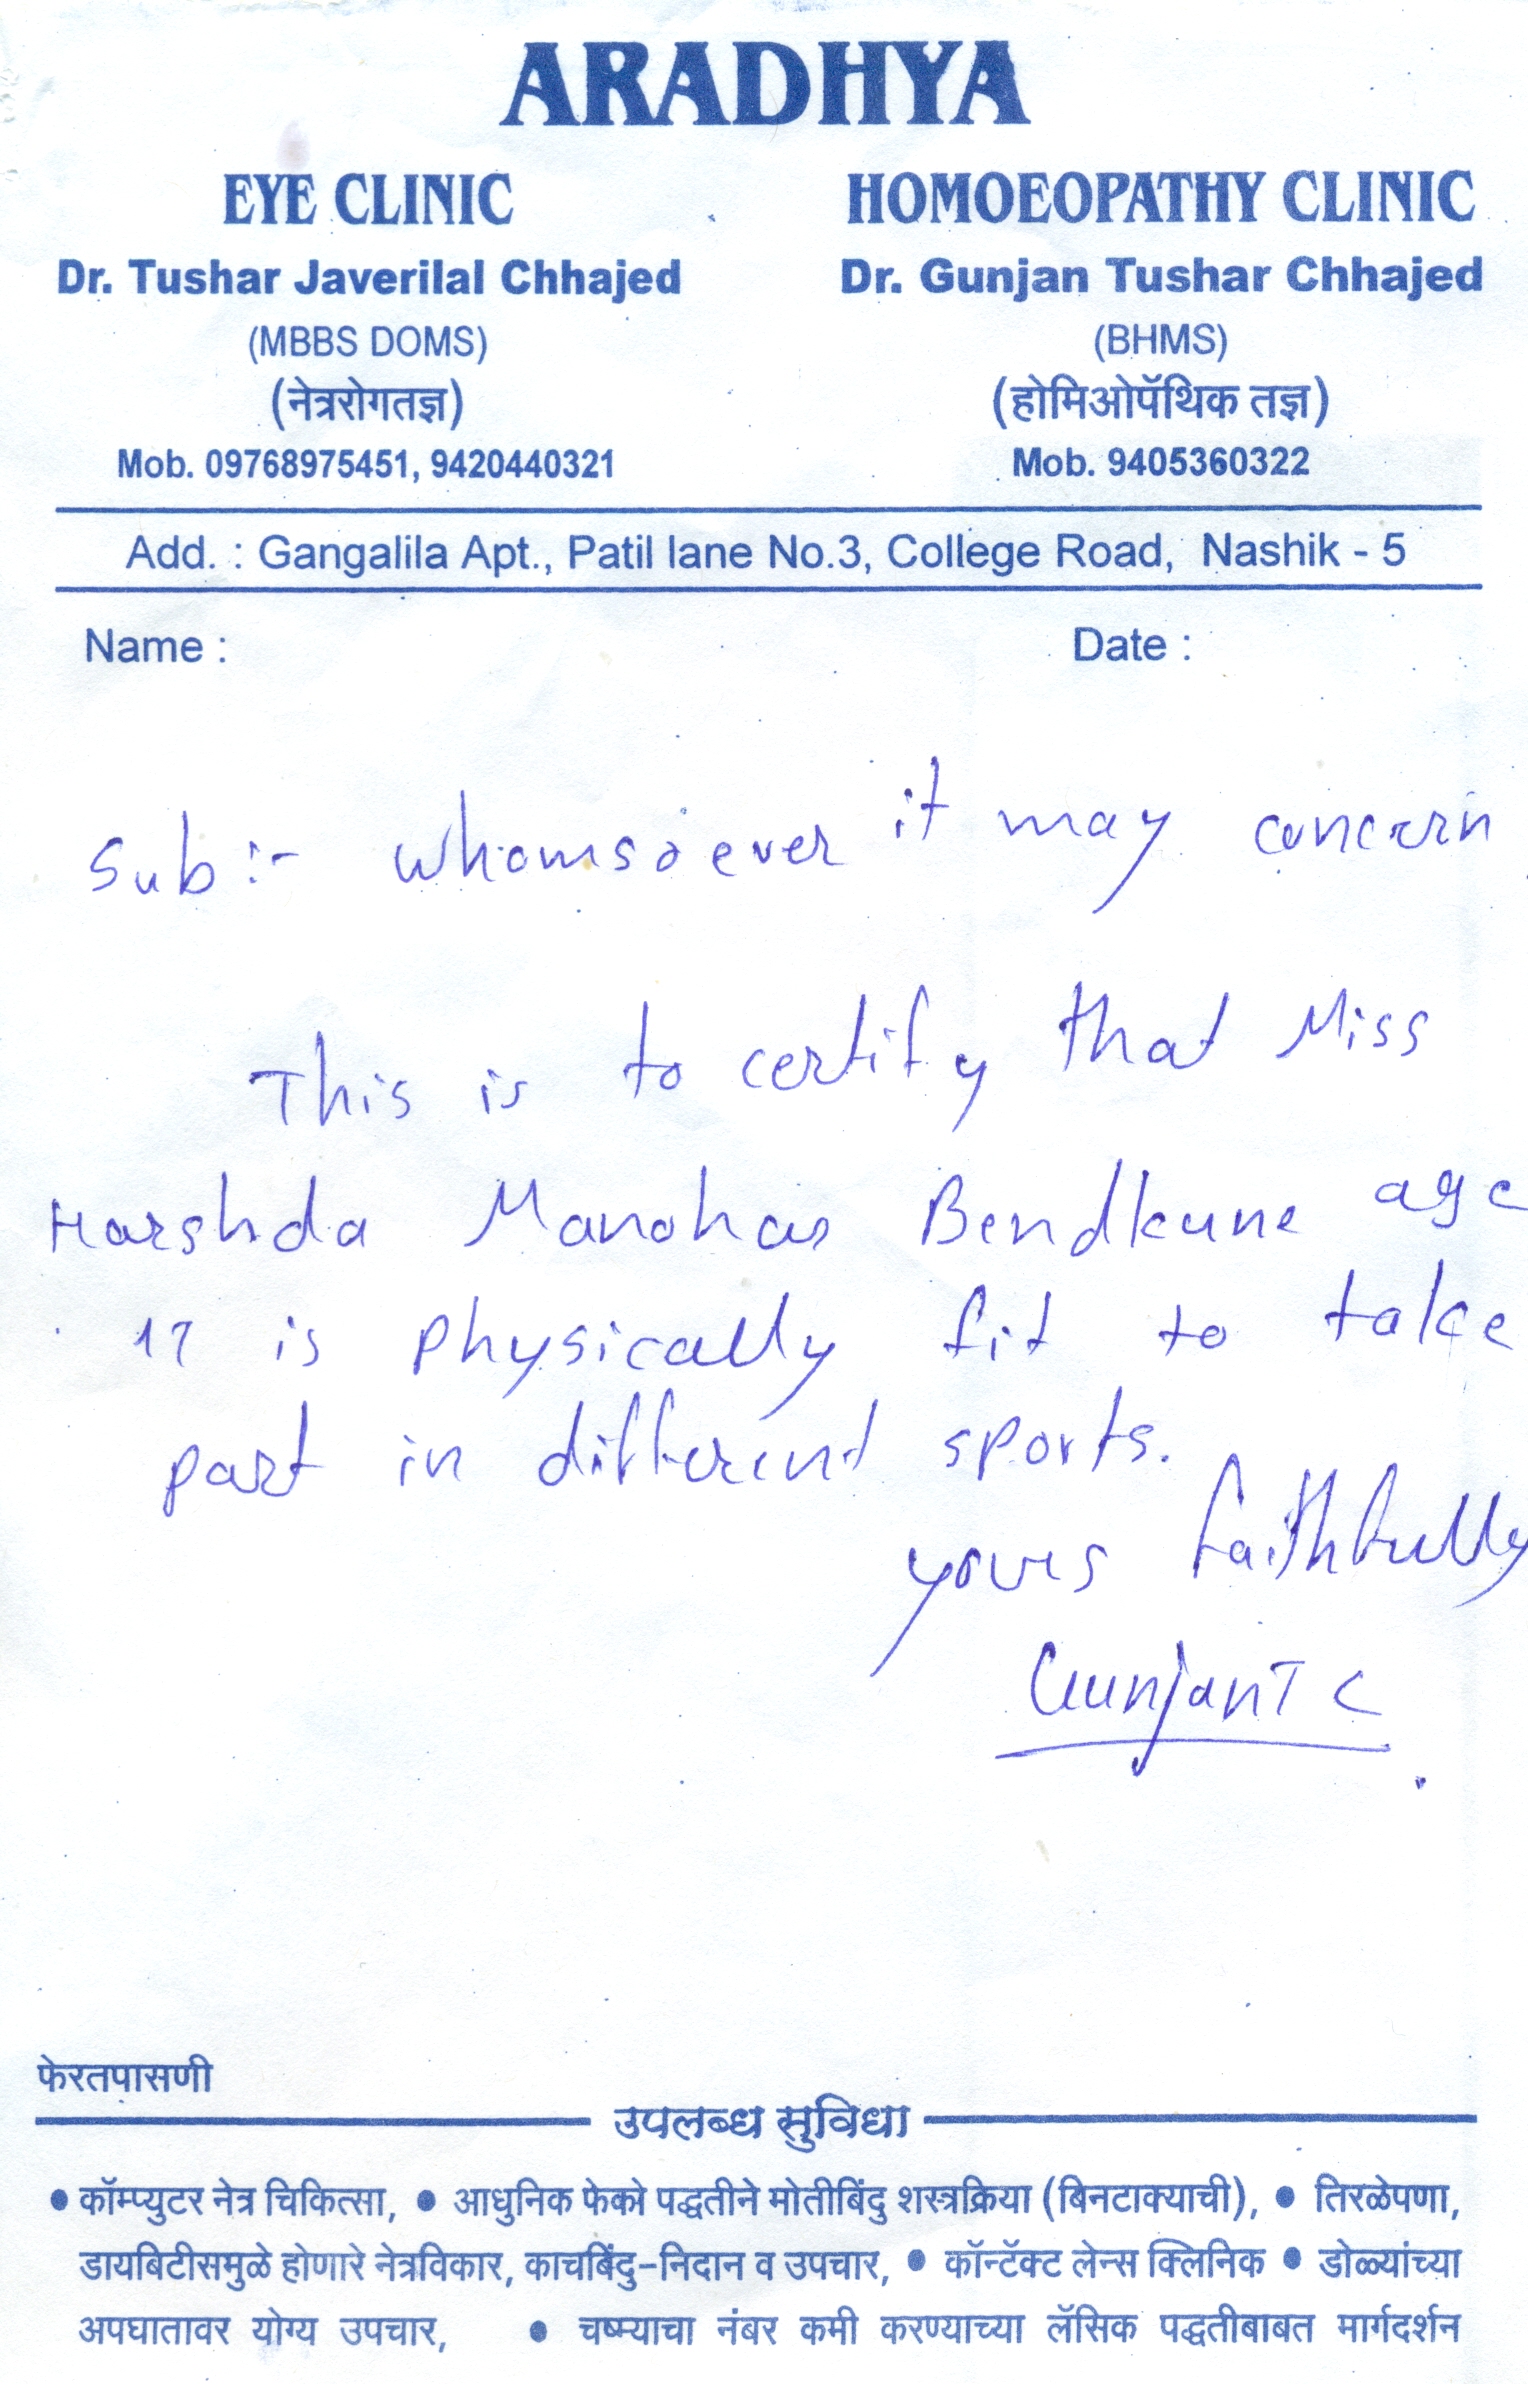 ARADHYA
EYE CLINIC
HOMOEOPATHY CLINIC
Dr. Tushar Javerilal Chhajed
Dr. Gunjan Tushar Chhajed
(MBBS DOMS)
(BHMS)
(नेत्ररोगतज्ञ)
(होमिओपॅथिक तज्ञ)
Mob. 09768975451, 9420440321
Mob. 9405360322
Add. : Gangalila Apt., Patil lane No.3, College Road, Nashik - 5
Name :
Date :
Sub:- Whomsoever it may concern
This is to certify that Miss
Harshda Manohar Bendkune age
17 is physically fit to take
part in different sports.
yours faithfully
Gunjan T C
फेरतपासणी
उपलब्ध सुविधा
• कॉम्प्युटर नेत्र चिकित्सा, • आधुनिक फेको पद्धतीने मोतीबिंदु शस्त्रक्रिया (बिनटाक्याची), • तिरळेपणा,
डायबिटीसमुळे होणारे नेत्रविकार, काचबिंदु-निदान व उपचार, • कॉन्टॅक्ट लेन्स क्लिनिक • डोळ्यांच्या
अपघातावर योग्य उपचार, • चष्म्याचा नंबर कमी करण्याच्या लॅसिक पद्धतीबाबत मार्गदर्शन